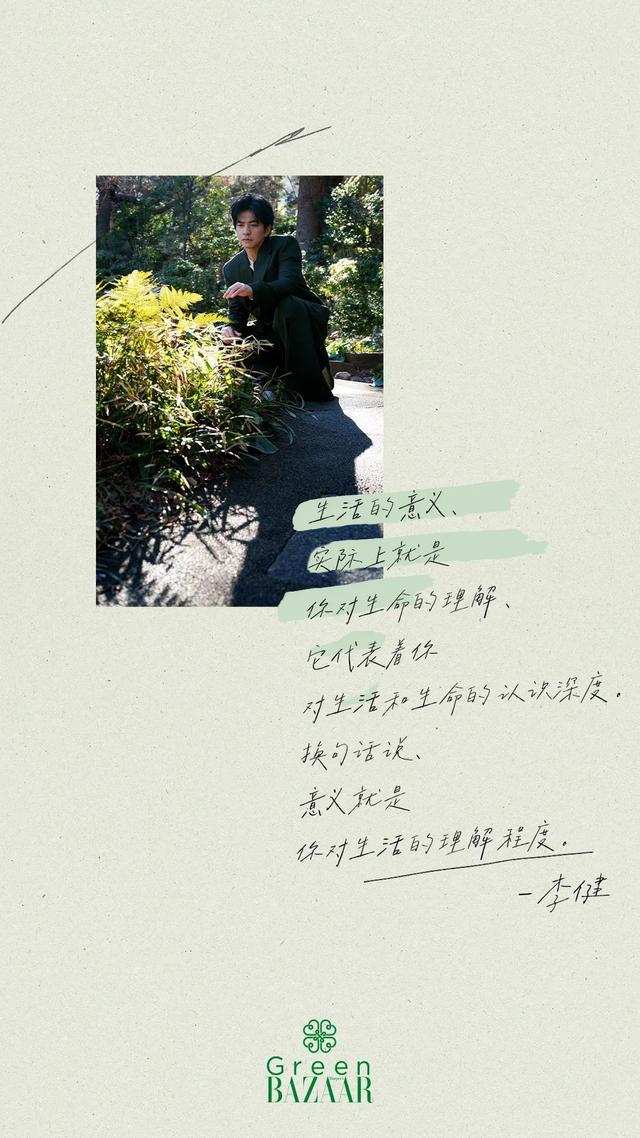 生活的意义、
实际上就是
你对生命的理解、
它代表着你
对生活和生命的认识深度。
换句话说、
意义就是
你对生活的理解程度。
—李健
Green
BAZAAR